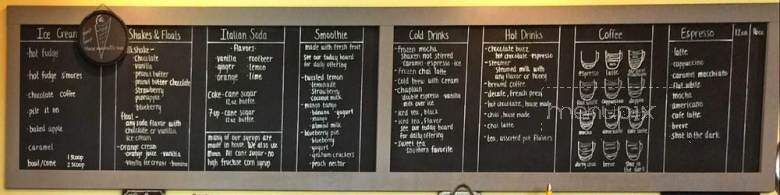 Ice Cream
-hot fudge
-hot fudge s'mores
-chocolate coffee
-pile it on
-baked apple
caramel
bowl/cone
1 scoop
2 scoop
Shakes & Floats
Milkshake-
Chocolate
vanilla
peanut butter
peanut butter chocolate
strawberry
pineapple
blueberry
float-
any soda flavor with
chocolate or vanilla
ice cream
-orange cream
-orange juice -vanilla
Italian Soda
-flavors-
vanilla rootbeer
ginger lemon
orange lime
Cake-cane sugar
12 oz. butter
7up-cane sugar
many of our syrups are
made in house. We also use
cane sugar-no
high fructose corn syrup
Smoothie
made with fresh fruit
see our today board
for daily offering
-twisted lemon
lemonade
strawberry
coconut milk
-mango tango
mango
banana -yogurt
-mango
almond milk
-blueberry pie
blueberry
-yogurt
-graham crackers
-peach nectar
Cold Drinks
-frozen mocha
Shaken not stirred
caramel-espresso-ice
-frozen chai latte
-cold brew with cream
double espresso vanilla
milk over ice
-iced tea, black
-iced tea, flavor
see our today board
for daily offering
-sweet tea
southern favorite
Hot Drinks
-chocolate buzz
hot chocolate espresso
-steamer
steamed milk with
any flavor or honey
-brewed coffee
-decafe, french press
-hot chocolate, house made
-chai, house made
-chai latte
-tea, assorted hot flavors
Coffee
espresso
latte
mocha
americano
cafe latte
dirty chai
breve
shot in the dark
Espresso
12oz
16oz
latte
cappuccino
caramel macchiato
flat white
mocha
americano
cafe latte
breve
shot in the dark
menupix